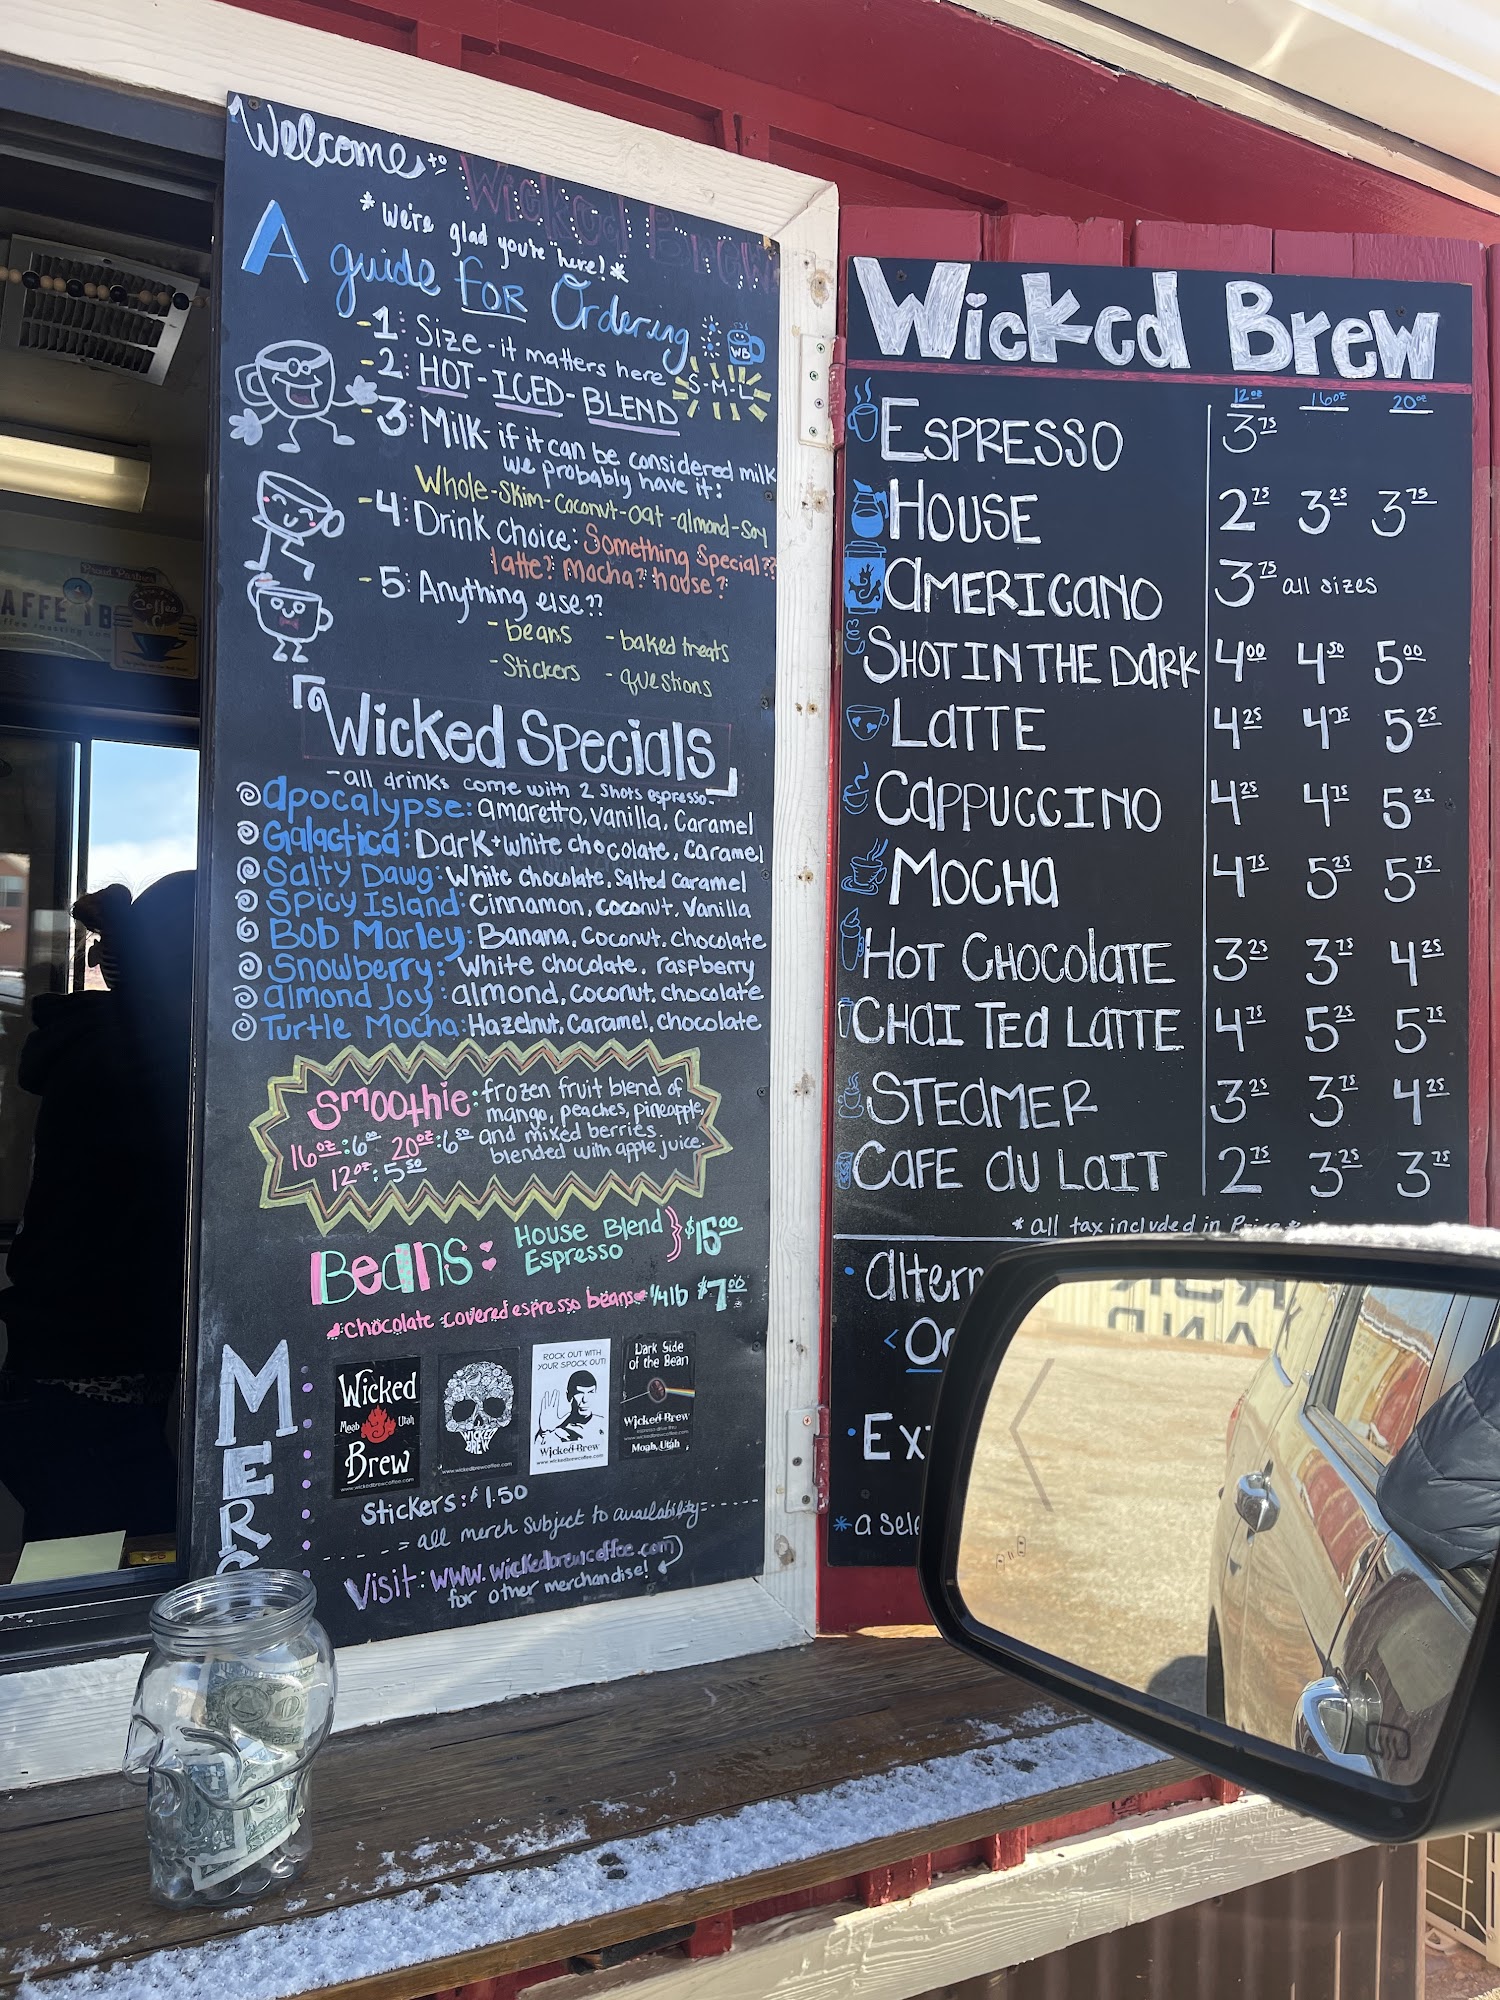 Welcome to Wicked Brew
*We're glad you're here!*
A guide FOR Ordering
WB
-1: Size - it matters here S-M-L
-2: HOT-ICED-BLEND
-3: Milk - if it can be considered milk
we probably have it:
Whole-Skim-Coconut-oat-almond-Soy
-4: Drink choice: Something Special??
latte? Mocha? house?
-5: Anything else??
-beans -baked treats
-Stickers -questions
Wicked Specials
-all drinks come with 2 shots espresso-
Apocalypse: amaretto, vanilla, Caramel
Galactica: Dark+white chocolate, Caramel
Salty Dawg: White chocolate, Salted Caramel
Spicy Island: Cinnamon, coconut, Vanilla
Bob Marley: Banana, Coconut, chocolate
Snowberry: White chocolate, raspberry
almond Joy: almond, coconut, chocolate
Turtle Mocha: Hazelnut, Caramel, chocolate
Smoothie: frozen fruit blend of
mango, peaches, pineapple,
and mixed berries.
blended with apple juice.
16oz: 6 00 20oz: 6 50
12oz: 5 50
Beans: House Blend } $15 00
Espresso
chocolate covered espresso beans 1/4lb $7 00
MERC
Wicked
Moab Utah
Brew
www.wickedbrewcoffee.com
WICKED
BREW
www.wickedbrewcoffee.com
ROCK OUT WITH
YOUR SPOCK OUT!
Wicked Brew
www.wickedbrewcoffee.com
Dark Side
of the Bean
Wicked Brew
Moab, Utah
Stickers: $1.50
- all merch subject to availability -
Visit: www.wickedbrewcoffee.com
for other merchandise!
Wicked Brew
12oz 16oz 20oz
ESPRESSO 3 75
HOUSE 2 75 3 25 3 75
AMERICANO 3 75 all sizes
SHOT IN THE DARK 4 00 4 50 5 00
LATTE 4 25 4 75 5 25
CAPPUCCINO 4 25 4 75 5 25
MOCHA 4 75 5 25 5 75
HOT CHOCOLATE 3 25 3 75 4 25
CHAI TEA LATTE 4 75 5 25 5 75
STEAMER 3 25 3 75 4 25
CAFE DU LAIT 2 75 3 25 3 75
*all tax included in Price*
Proud Partner
Coffee